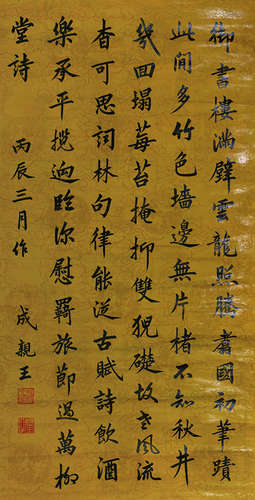 御書樓滿壁雲龍照騰翥國初筆蹟
此間多竹色墻邊無片楮不知秋井
幾回塌莓苔掩抑雙猊礎故老風流
杳可思詞林句律能古賦詩飲酒
樂承平攬逈臨深慰羈旅節過萬柳
堂詩 丙辰三月作 成親王